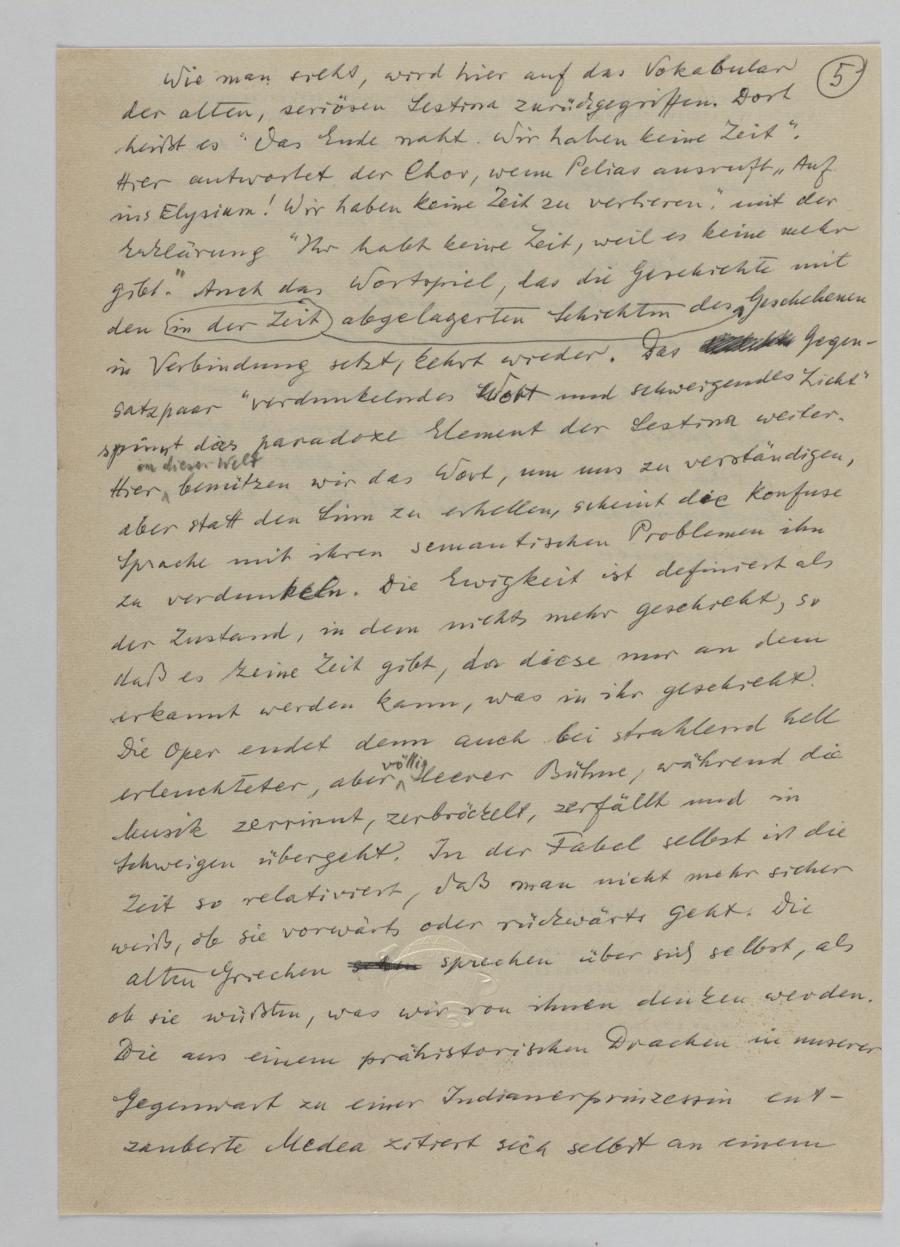 5
Wie man sieht, wird hier auf das Vokabular
der alten, seriösen Sestina zurückgegriffen. Dort
heißt es "Das Ende naht. Wir haben keine Zeit".
Hier antwortet der Chor, wenn Pelias ausruft „Auf
ins Elysium! Wir haben keine Zeit zu verlieren", mit der
Erklärung "Ihr habt keine Zeit, weil es keine mehr
gibt." Auch das Wortspiel, das die Geschichte mit
den in der Zeit abgelagerten Schichten des Geschehenen
in Verbindung setzt, kehrt wieder. Das Gegen-
satzpaar "verdunkelndes Wort und schweigendes Licht"
spinnt das paradoxe Element der Sestina weiter.
in dieser Welt
Hier benützen wir das Wort, um uns zu verständigen,
aber statt den Sinn zu erhellen, scheint die konfuse
Sprache mit ihren semantischen Problemen ihn
zu verdunkeln. Die Ewigkeit ist definiert als
der Zustand, in dem nichts mehr geschieht, so
daß es keine Zeit gibt, da diese nur an dem
erkannt werden kann, was in ihr geschieht.
Die Oper endet denn auch bei strahlend hell
völlig
erleuchteter, aber leerer Bühne, während die
Musik zerrinnt, zerbröckelt, zerfällt und in
Schweigen übergeht. In der Fabel selbst ist die
Zeit so relativiert, daß man nicht mehr sicher
weiß, ob sie vorwärts oder rückwärts geht. Die
alten Griechen sprechen über sich selbst, als
ob sie wüßten, was wir von ihnen denken werden.
Die aus einem prähistorischen Drachen in unserer
Gegenwart zu einer Indianerprinzessin ent-
zauberte Medea zitiert sich selbst an einem